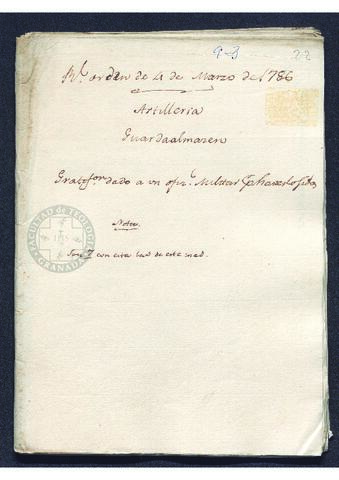 9-3 22
Rl. orden de 4 de Marzo de 1786
Artilleria
Guardaalmazen
Gratifon. dado a un ofizl. Militar
Notas
con esta de este
FACULTAD DE TEOLOGIA
GRANADA